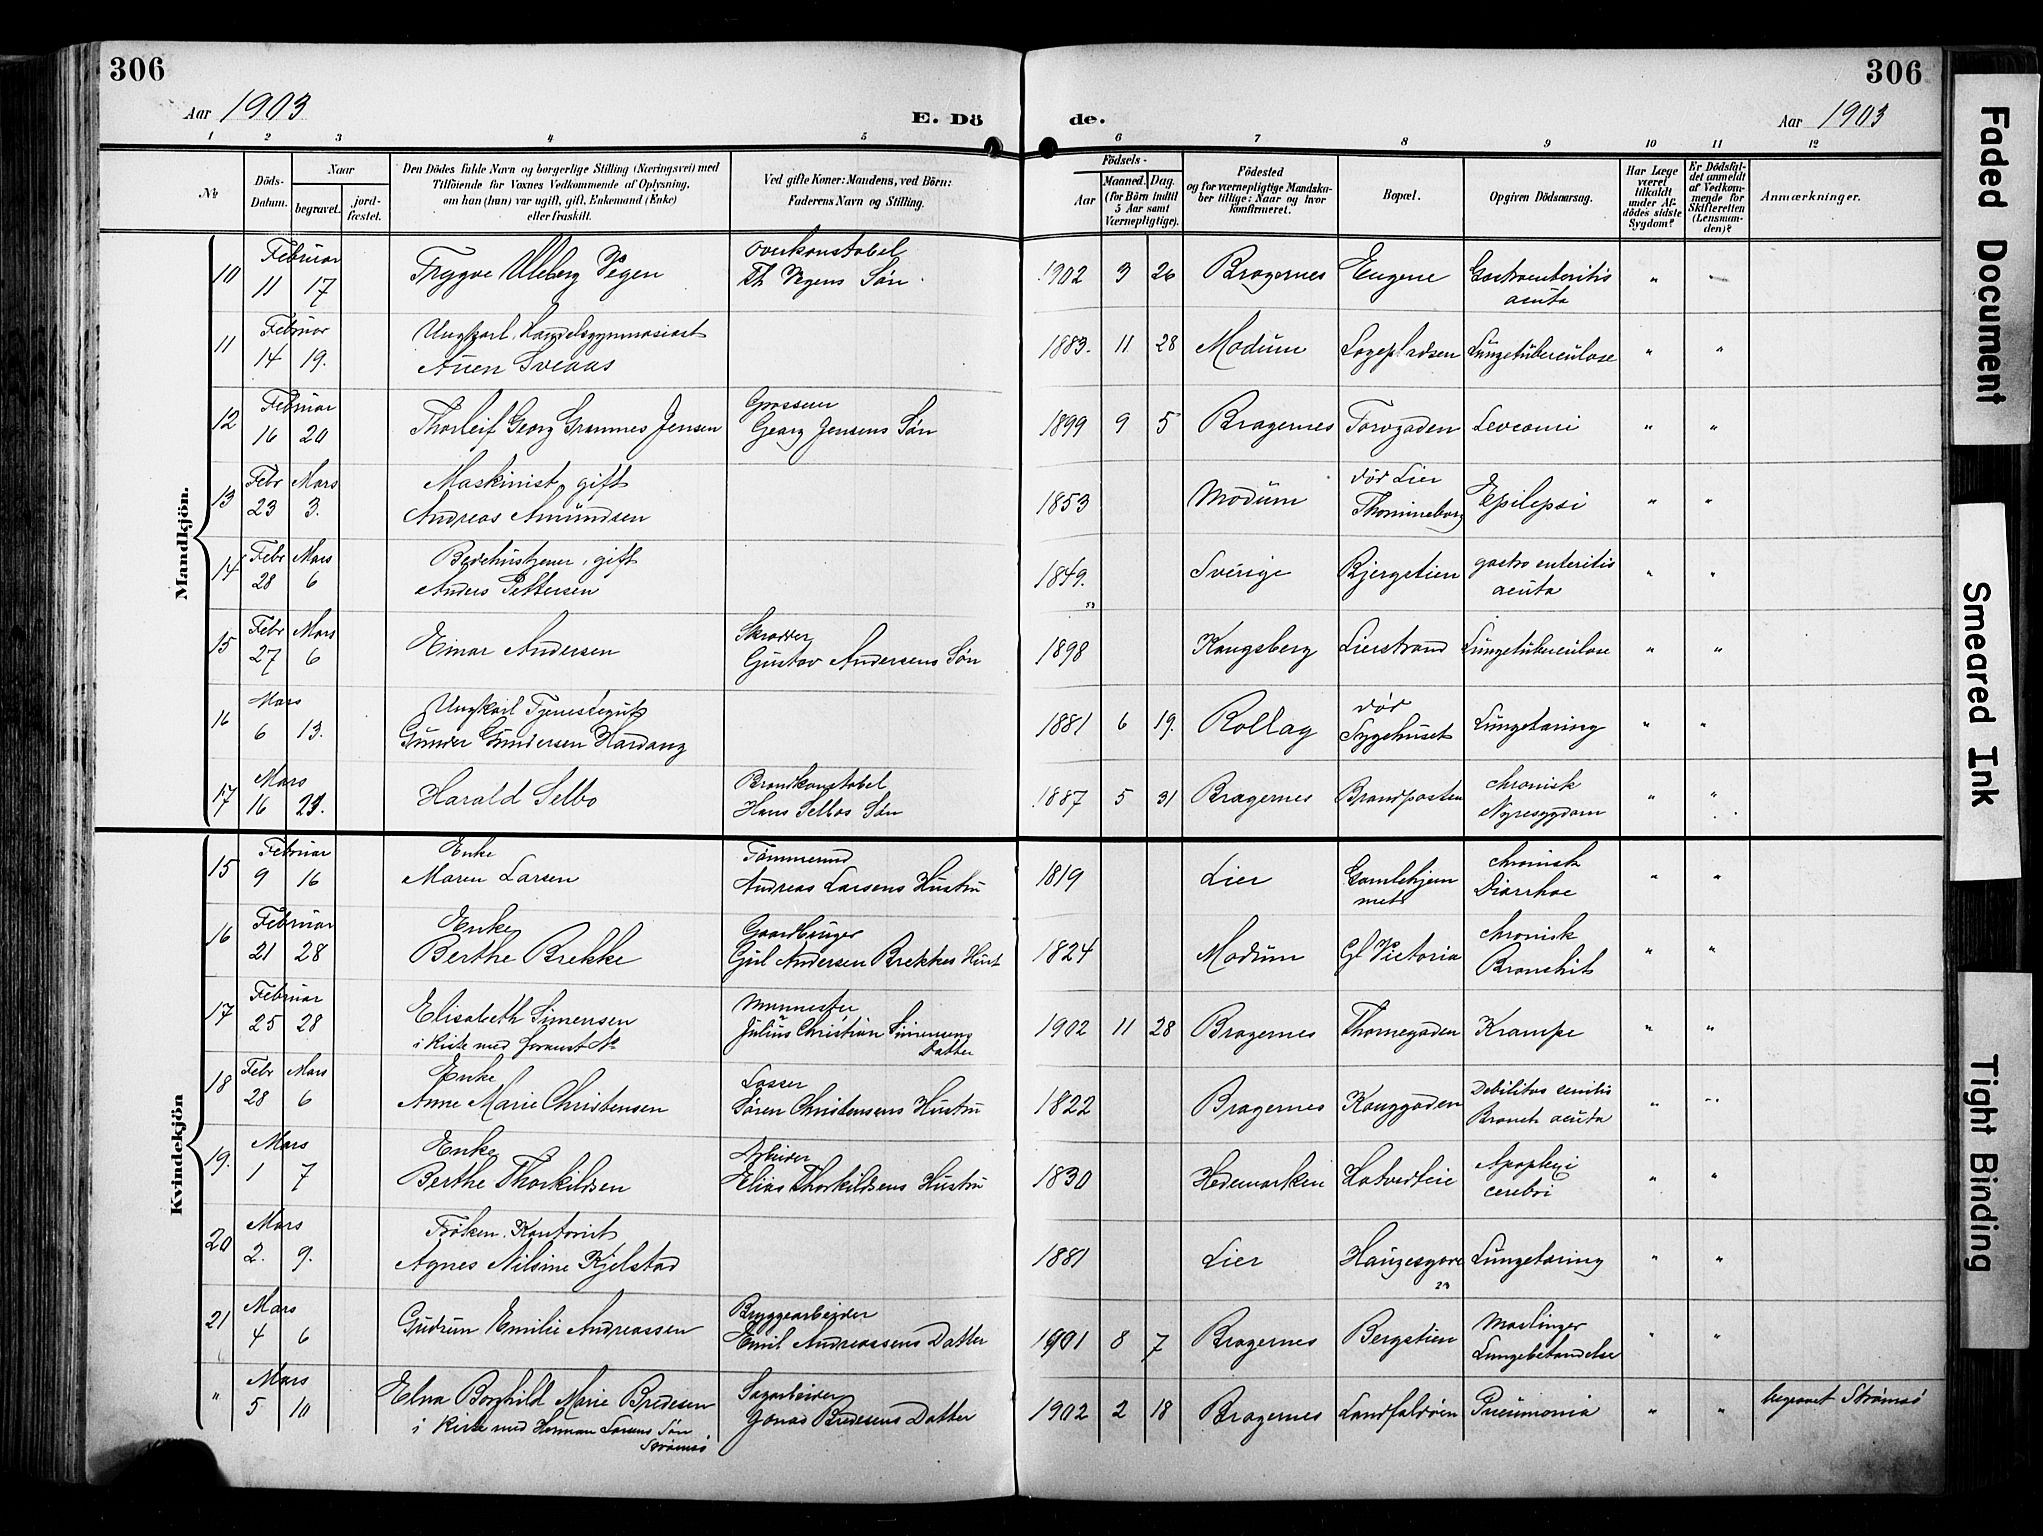 306
306
Aar 1903
E. Dö
de.
Aar 1903
1 2 3 4 5 6 7 8 9 10 11 12
№
Döds-Datum.
Naar
begravet.
jord-fæstet.
Den Dödes fulde Navn og borgerlige Stilling (Næringsvei) med
Tilföiende for Voxnes Vedkommende af Oplysning,
om han (hun) var ugift, gift, Enkemand (Enke)
eller fraskilt.
Ved gifte Koner: Mandens, ved Börn:
Faderens Navn og Stilling.
Födsels-
Aar
Maaned. Dag.
(for Börn indtil
5 Aar samt
Værnepligtige).
Födested
og for værnepligtige Mandska-
ber tillige: Naar og hvor
konfirmeret.
Bopæl.
Opgiven Dödsaarsag.
Har Læge
været
tilkaldt
under Af-
dödes sidste
Sygdom?
Er Dödsfal-
det anmeldt
af Vedkom-
mende for
Skifteretten
(Lensman-
den)?
Anmærkninger.
Mandkjön.
10 Februar 11 17 Trygve Ulleberg Vegen Overkonstabel Th Vegens Søn. 1902 3 26 Bragernes Eugene Gastroenteritis acuta " "
11 Februar 14 19. Ungkarl, Handelsgymnasiast Auen Sveaas 1883. 11 28 Modum Lagepladsen Lungetuberculose " "
12 Februar 16 20 Thorleif Georg Grammes Jensen Grosserer Georg Jensens Søn 1899 9 5 Bragernes Torvgaden Leucomi " "
13 Febr 23 Mars 3. Maskinist, gift Andreas Amundsen 1853 Modum død Lier Thomineborg Epilepsi " "
14 Febr 28 Mars 6 Bedehustjener, gift Anders Pettersen 1849. Sverige Bjergstien gastro enteritis acuta " "
15 Febr 27 Mars 6 Einar Andersen Skrædder Gustav Andersens Søn 1898 Kongsberg Lierstrand Lungetuberculose " "
16 Mars 6 13. Ungkarl Tjenestegut Gunder Gundersen Hardang 1881 6 19. Rollag død Sygehuset Lungetæring " "
17 Mars 16 23. Harald Selbo Brandkonstabel Hans Selbos Søn 1887 5 31 Bragernes Brandposten chronisk Nyresygdom " "
Kvindekjön
15 Februar 9 16 Enke Maren Larsen Tømmermd Andreas Larsens Hustru 1819 Lier Gamlehjemmet chronisk Diarrhoe " "
16 Februar 21 28 Enke Berthe Brekke Gaardbruger Gul Andersen Brekkes Hust 1824 Modum Gl Victoria chronisk Bronchit " "
17 Februar 25 28 Elisabeth Simensen Murmester Julius Christian Simensens Datter 1902 11 28 Bragernes Thornegaden Krampe " "
i Kiste med
18 Febr 28 Mars 6 Enke Anne Marie Christensen Losser Søren Christensens Hustru 1822 Bragernes Konggaden Debilitas senilis Bronch acuta " "
19. Mars 1 7 Enke Berthe Thorkildsen Arbeider Elias Thorkildsens Hustru 1830 Hedemarken Hotvedtveie Apoplexi cerebri " "
20 Mars 2. 9. Frøken, Kontorist Agnes Nilsine Kjelstad 1881 Lier Haugesgade 23 Lungetæring " "
21 Mars 4 6 Gudrun Emilie Andreassen Bryggearbejder Emil Andreassens Datter 1901 8 7 Bragernes Bergstien Mæslinger Lungebetændelse " "
" Mars 5 10 Elna Borghild Marie Bredesen Sagarbeider Jonas Bredesens Datter 1902 2 18 Bragernes Landfaldøen Pneumonia " " begravet Strømsø
i Kiste med Herman Larsens Søn
Strømsø
Faded Document
Smeared Ink
Tight Binding